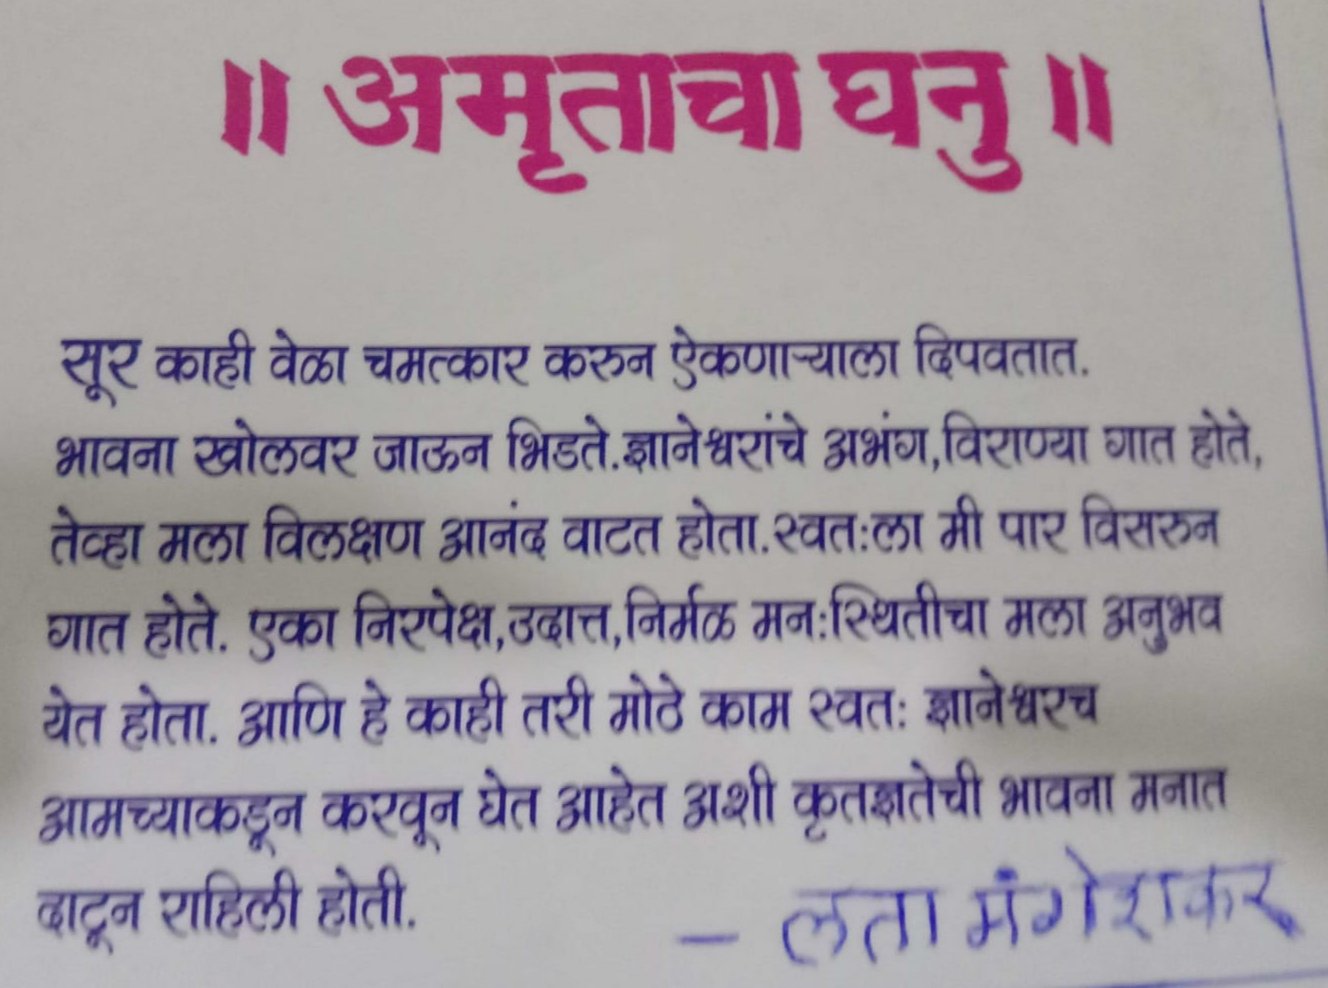 ॥ अमृताचा घनु ॥
सूर काही वेळा चमत्कार करुन ऐकणाऱ्याला दिपवतात.
भावना खोलवर जाऊन भिडते.ज्ञानेश्वरांचे अभंग,विराण्या गात होते,
तेव्हा मला विलक्षण आनंद वाटत होता.स्वत:ला मी पार विसरुन
गात होते. एका निरपेक्ष,उदात्त,निर्मळ मन:स्थितीचा मला अनुभव
येत होता. आणि हे काही तरी मोठे काम स्वत: ज्ञानेश्वरच
आमच्याकडून करवून घेत आहेत अशी कृतज्ञतेची भावना मनात
दाटून राहिली होती.
– लता मंगेशकर